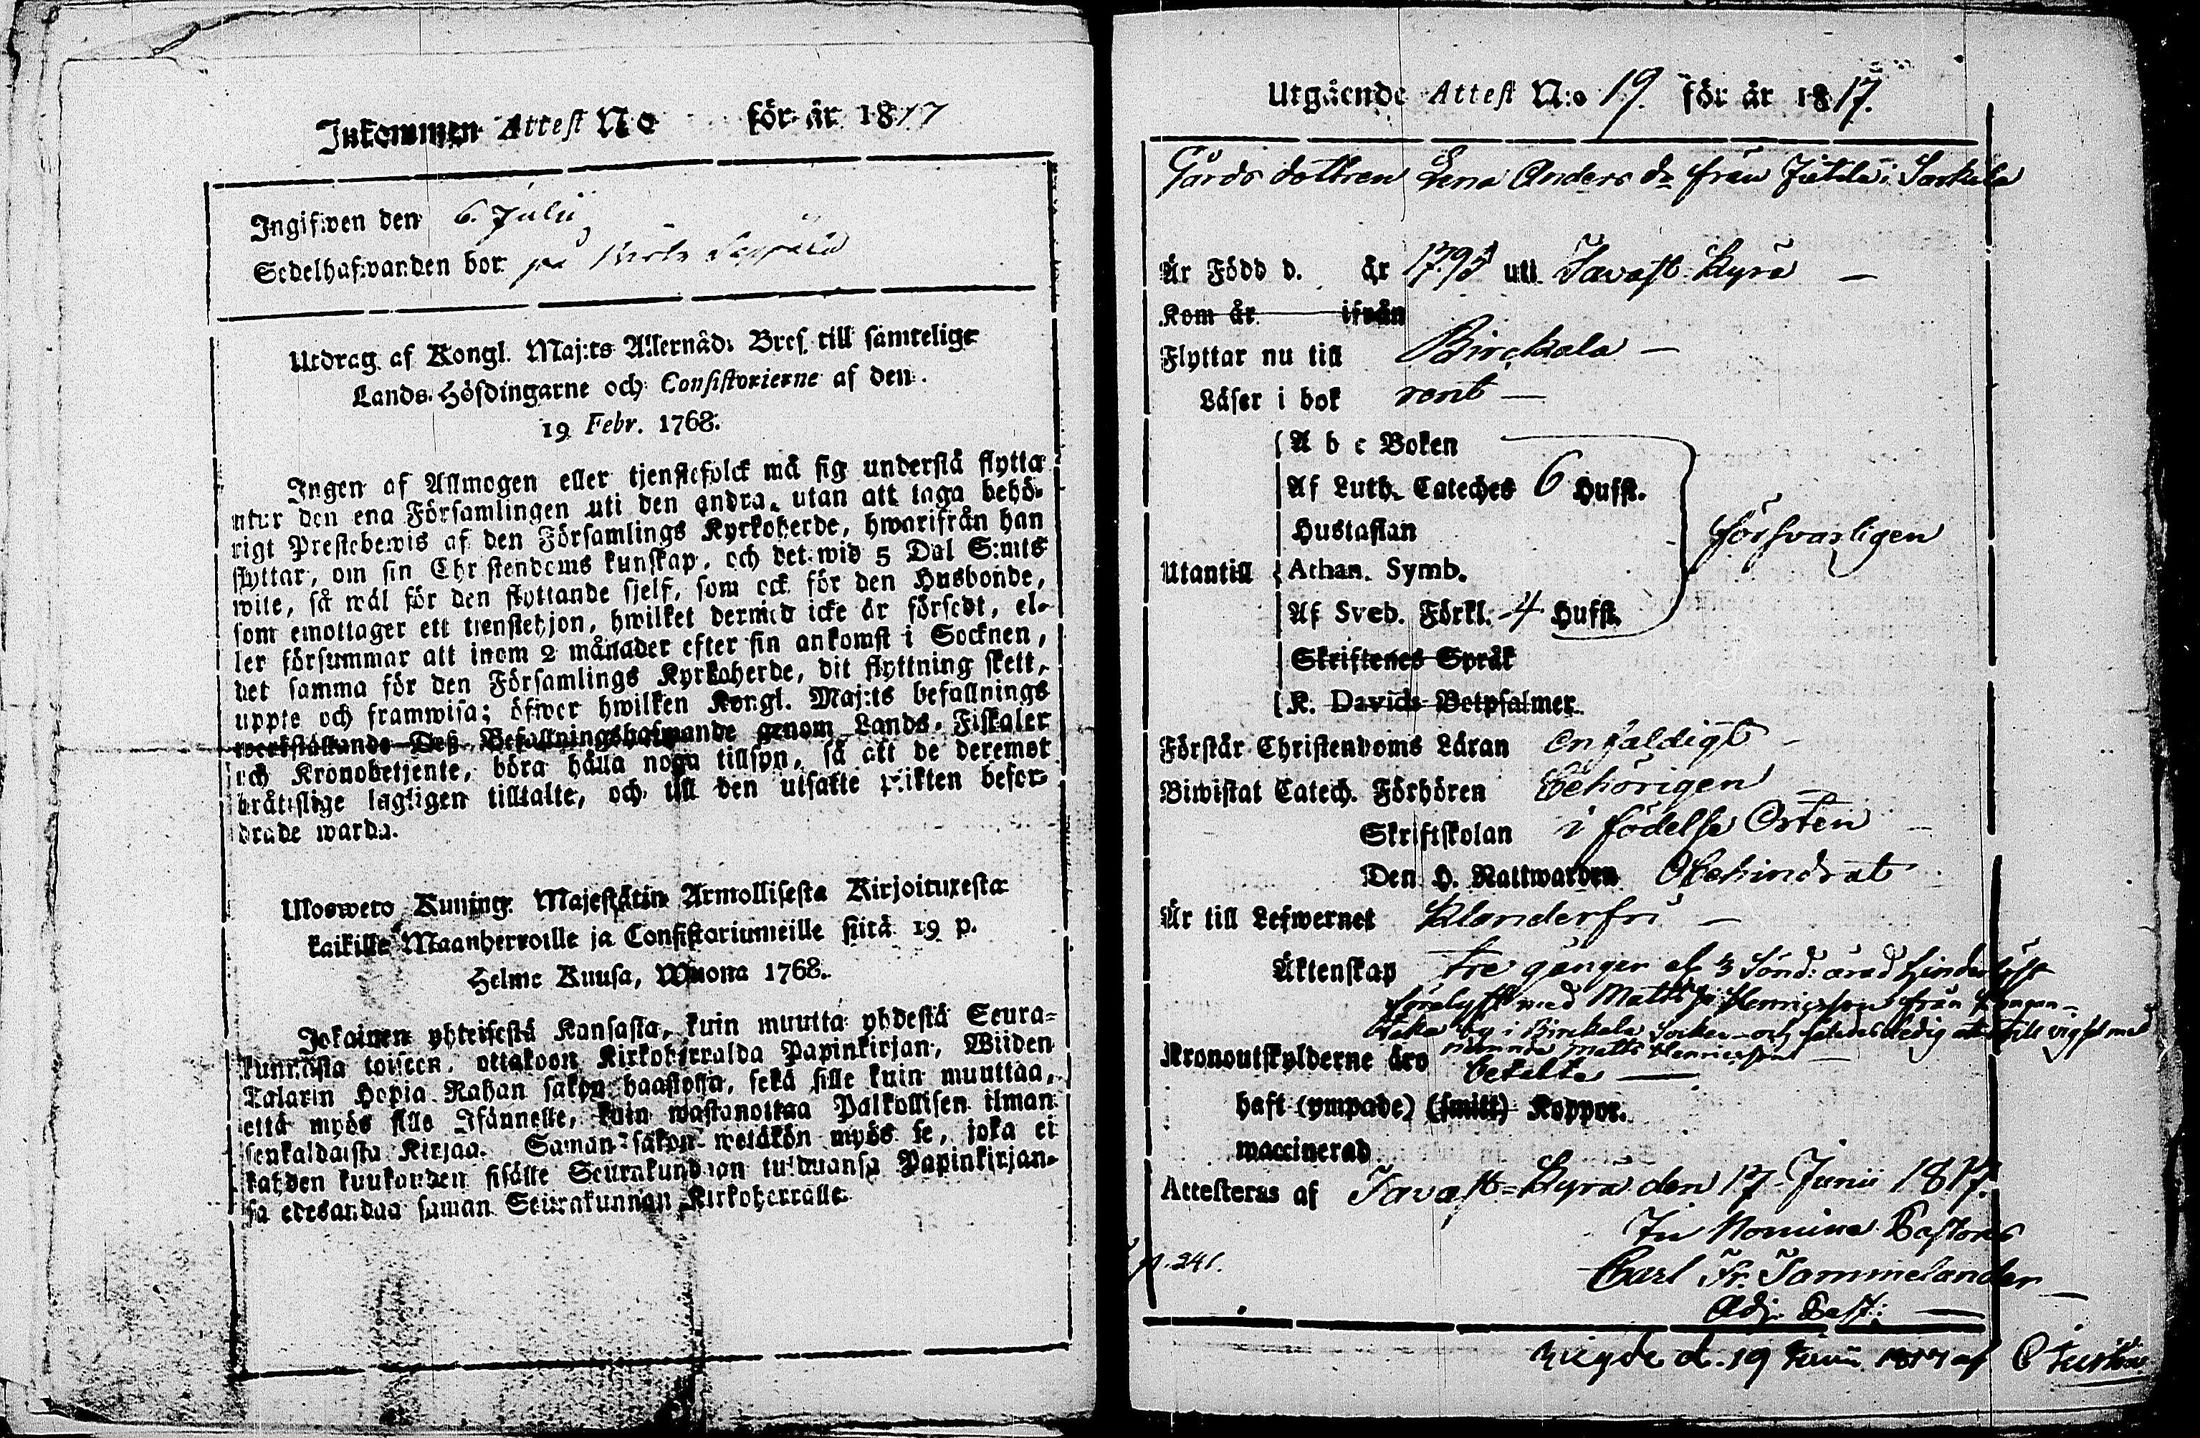 Inkommen Attest No för år 1817
Ingifwen den 6. Julii
Sedelhafwanden bor på
Utdrag af Kongl. Maj:ts Allernåd: Bref till samtelige
Lands-Höfdingarne och Consistorierne af den
19 Febr. 1768.
Ingen af Allmogen eller tjenstefolck må sig understå flytta
utur den ena Församlingen uti den andra, utan att taga behö-
rigt Prestebewis af den Församlings Kyrkoherde, hwarifrån han
flyttar, om sin Christendoms kunskap, och det wid 5 Dal S:mts
wite, så wäl för den flyttande sjelf, som ock för den Husbonde,
som emottager ett tjenstehjon, hwilket dermed icke är försedt, el-
ler försummar att inom 2 månader efter sin ankomst i Socknen,
det samma för den Församlings Kyrkoherde, dit flyttning skett,
uppte och framwisa; öfwer hwilken Kongl. Maj:ts befallnings
werkställande Deß Befallningshafwande genom Lands-Fiskaler
och Kronobetjente, böra hålla noga tillsyn, så att de deremot
bråtislige lagligen tilltalte, och till den utsatte plikten befor-
drade warda.
Ulosweto Kuning: Majestätin Armollisesta Kirjoituxesta
kaikille Maanherroille ja Consistoriumeille siitä 19 p.
Helme Kuusa, Wuona 1768.
Jokainen yhteisestä Kansasta, kuin muutta yhdestä Seura-
kunnasta toiseen, ottakoon Kirkoherralda Papinkirjan, Wiiden
Talarin Hopia Rahan sakon haastossa, sekä sille kuin muuttaa,
että myös sille Isännelle, kuin wastanottaa Palkollisen ilman
senkaldaista Kirjaa. Saman sakon wetäkön myös se, joka ei
kahden kuukauden sisälle Seurakundaan tulduansa Papinkirjan-
sa edesandaa saman Seurakunnan Kirkoherralle.
Utgående Attest N:o 19. för år 1817.
Gårds dottren Lena Anders dr från Jutila i Sarkela
Är Född d. år 1795 uti Tavast Kyro
Kom år ifrån
Flyttar nu till Birckala
Läser i bok rent
A b c Boken
Af Luth. Cateches 6 Hufst.
Hustaflan
Utantill Athan. Symb. försvarligen
Af Sveb. Förkl. 4 Hufst.
Skriftenes Språk
K. Davids Botpsalmer
Förstår Christendoms Läran enfaldigt
Biwistat Catech. Förhören behörigen
Skriftskolan i födelse Orten
Den H. Nattwarden Obehindrat
Är till Lefwernet Klanderfri
Äktenskap tre gånger af 3 Sönd: arad hinderlöst
förelyst med Matts Henricsson från
by i Birckala Socken och ledig att till vigsel med
Matts Henricsson
Kronoutskylderne äro betalte
haft (ympade) (smitt) Koppor.
waccinerad
Attesteras af Tavast-Kyro den 17 Junii 1817.
In Nomine Pastoris
Carl Fr. Tammelander
Adj. Past:
p. 241.
Vigde d. 19 Junii 1817 af